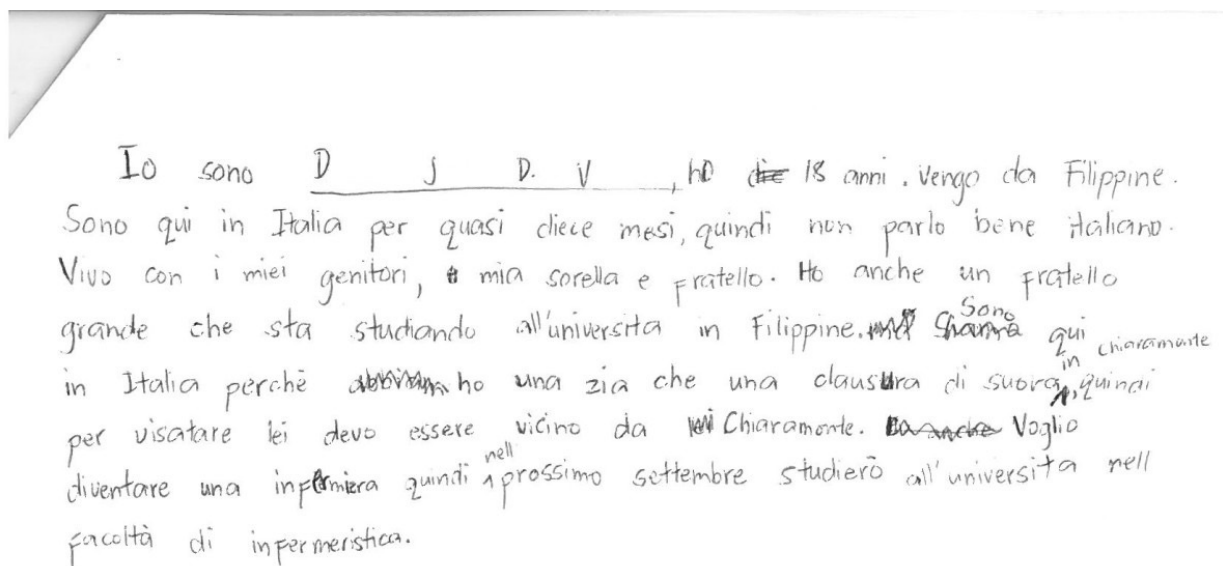 Io sono D J D. V, ho 18 anni. Vengo da Filippine.
Sono qui in Italia per quasi diece mesi, quindi non parlo bene italiano.
Vivo con i miei genitori, mia sorella e fratello. Ho anche un fratello
grande che sta studiando all'universita in Filippine. Sono qui
in Italia perchè ho una zia che una clausura di suora in chiaramonte, quindi
per visatare lei devo essere vicino da Chiaramonte. Voglio
diventare una infermiera quindi nell prossimo settembre studierò all'universita nell
facoltà di infermeristica.